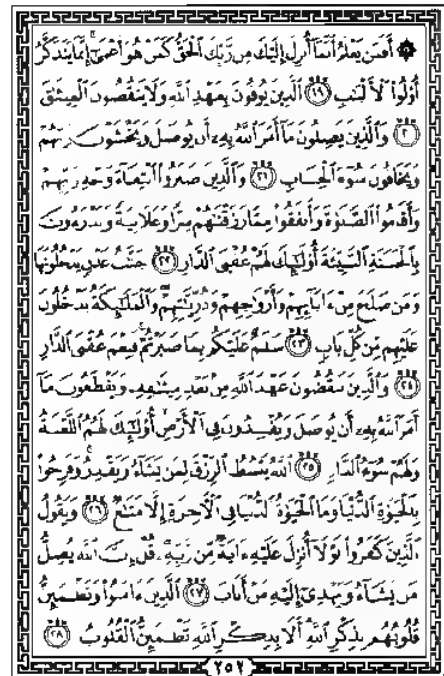 ۞ أَفَمَن يَعْلَمُ أَنَّمَآ أُنزِلَ إِلَيْكَ مِن رَّبِّكَ ٱلْحَقُّ كَمَنْ هُوَ أَعْمَىٰٓ ۚ إِنَّمَا يَتَذَكَّرُ
أُو۟لُوا۟ ٱلْأَلْبَـٰبِ ١٩ ٱلَّذِينَ يُوفُونَ بِعَهْدِ ٱللَّهِ وَلَا يَنقُضُونَ ٱلْمِيثَـٰقَ
٢٠ وَٱلَّذِينَ يَصِلُونَ مَآ أَمَرَ ٱللَّهُ بِهِۦٓ أَن يُوصَلَ وَيَخْشَوْنَ رَبَّهُمْ
وَيَخَافُونَ سُوٓءَ ٱلْحِسَابِ ٢١ وَٱلَّذِينَ صَبَرُوا۟ ٱبْتِغَآءَ وَجْهِ رَبِّهِمْ
وَأَقَامُوا۟ ٱلصَّلَوٰةَ وَأَنفَقُوا۟ مِمَّا رَزَقْنَـٰهُمْ سِرًّا وَعَلَانِيَةً وَيَدْرَءُونَ
بِٱلْحَسَنَةِ ٱلسَّيِّئَةَ أُو۟لَـٰٓئِكَ لَهُمْ عُقْبَى ٱلدَّارِ ٢٢ جَنَّـٰتُ عَدْنٍ يَدْخُلُونَهَا
وَمَن صَلَحَ مِنْ ءَابَآئِهِمْ وَأَزْوَٰجِهِمْ وَذُرِّيَّـٰتِهِمْ ۖ وَٱلْمَلَـٰٓئِكَةُ يَدْخُلُونَ
عَلَيْهِم مِّن كُلِّ بَابٍ ٢٣ سَلَـٰمٌ عَلَيْكُم بِمَا صَبَرْتُمْ ۚ فَنِعْمَ عُقْبَى ٱلدَّارِ
٢٤ وَٱلَّذِينَ يَنقُضُونَ عَهْدَ ٱللَّهِ مِنۢ بَعْدِ مِيثَـٰقِهِۦ وَيَقْطَعُونَ مَآ
أَمَرَ ٱللَّهُ بِهِۦٓ أَن يُوصَلَ وَيُفْسِدُونَ فِى ٱلْأَرْضِ ۙ أُو۟لَـٰٓئِكَ لَهُمُ ٱللَّعْنَةُ
وَلَهُمْ سُوٓءُ ٱلدَّارِ ٢٥ ٱللَّهُ يَبْسُطُ ٱلرِّزْقَ لِمَن يَشَآءُ وَيَقْدِرُ ۚ وَفَرِحُوا۟
بِٱلْحَيَوٰةِ ٱلدُّنْيَا وَمَا ٱلْحَيَوٰةُ ٱلدُّنْيَا فِى ٱلْـَٔاخِرَةِ إِلَّا مَتَـٰعٌ ٢٦ وَيَقُولُ
ٱلَّذِينَ كَفَرُوا۟ لَوْلَآ أُنزِلَ عَلَيْهِ ءَايَةٌ مِّن رَّبِّهِۦ ۗ قُلْ إِنَّ ٱللَّهَ يُضِلُّ
مَن يَشَآءُ وَيَهْدِىٓ إِلَيْهِ مَنْ أَنَابَ ٢٧ ٱلَّذِينَ ءَامَنُوا۟ وَتَطْمَئِنُّ
قُلُوبُهُم بِذِكْرِ ٱللَّهِ ۗ أَلَا بِذِكْرِ ٱللَّهِ تَطْمَئِنُّ ٱلْقُلُوبُ ٢٨
٢٥٢